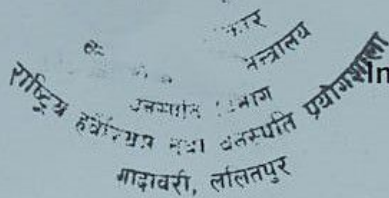 कार
मन्त्रालय
वनस्पति विभाग
राष्ट्रिय हर्बेरियम तथा वनस्पति प्रयोगशाला
गोदावरी, ललितपुर
In